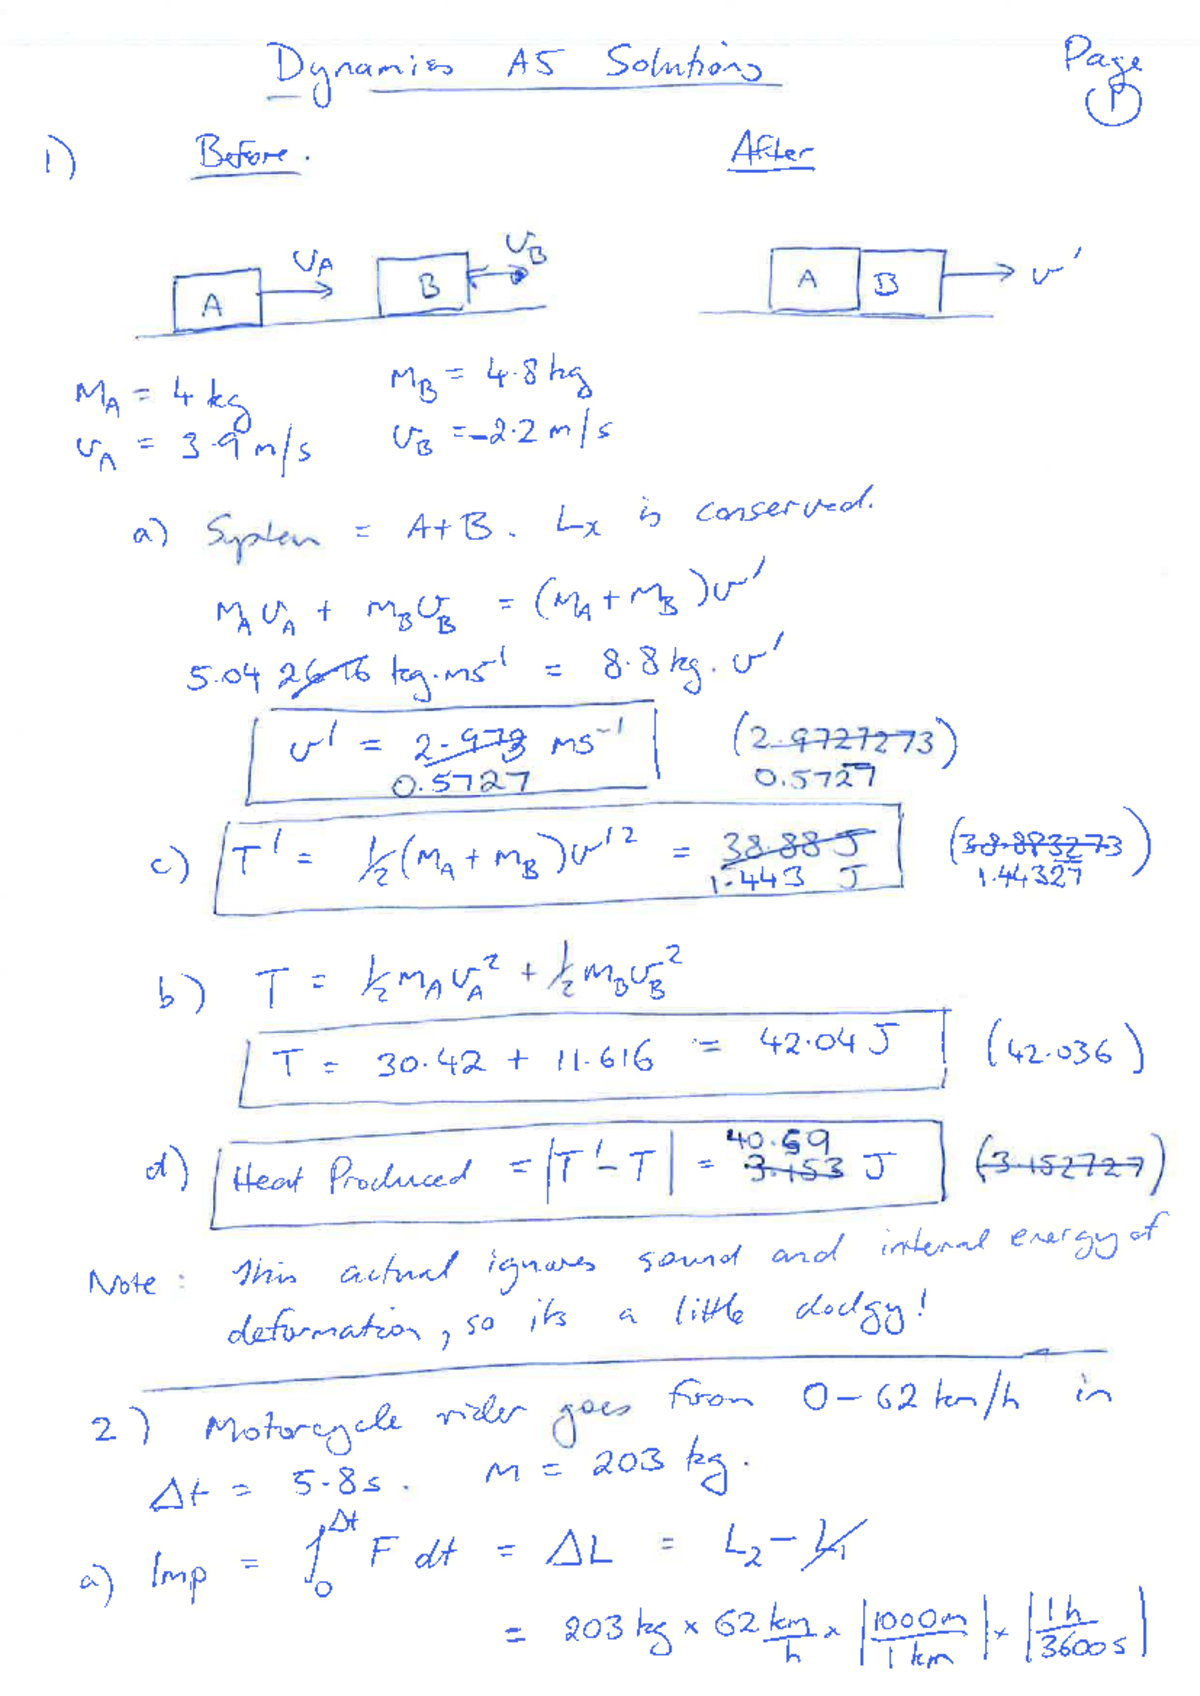 Dynamics A5 Solutions
Page 1
1) Before. After
A vA B vB A B v'
mA = 4 kg mB = 4.8 kg
vA = 3.9 m/s vB = -2.2 m/s
a) System = A+B. Lx is conserved.
mA vA + mB vB = (mA + mB) v'
5.04 kg.ms⁻¹ = 8.8 kg. v'
v' = 2.973 ms⁻¹ (2.9727273)
0.5727 0.5727
c) T' = 1/2 (mA + mB) v'² = 38.88 J (38.883273)
1.443 J 1.44327
b) T = 1/2 mA vA² + 1/2 mB vB²
T = 30.42 + 11.616 = 42.04 J (42.036)
40.59
d) Heat Produced = |T' - T| = 3.153 J (3.152727)
Note: This actual ignores sound and internal energy of
deformation, so its a little dodgy!
2) Motorcycle rider goes from 0 - 62 km/h in
Δt = 5.8s. m = 203 kg.
a) Imp = ∫₀^Δt F dt = ΔL = L₂ - L₁
= 203 kg × 62 km/h × |1000m / 1 km| × |1h / 3600s|